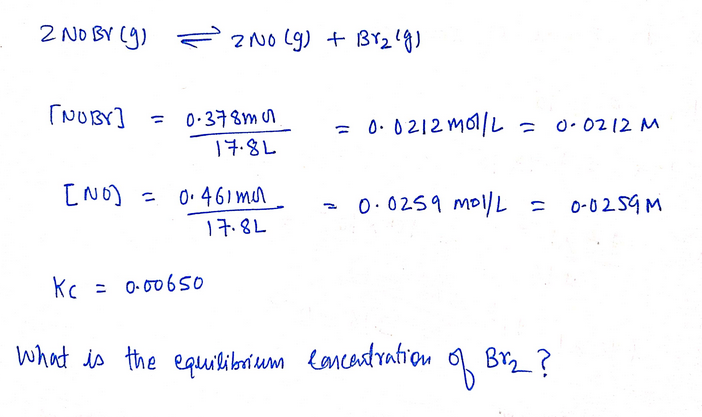 2 NOBr (g) ⇌ 2NO (g) + Br₂ (g)
[NOBr] = 0.378 mol / 17.8 L = 0.0212 mol/L = 0.0212 M
[NO] = 0.461 mol / 17.8 L = 0.0259 mol/L = 0.0259 M
Kc = 0.00650
What is the equilibrium concentration of Br₂?